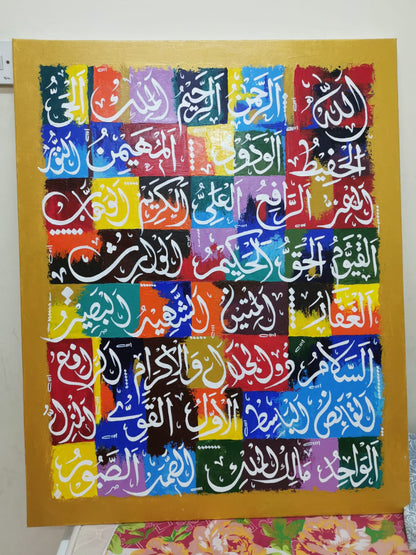 الله الرحمن الرحيم الملك الحي
الحفيظ الودود المهيمن النور
الرافع العلي الكريم
القيوم الحق الحكيم الوارث
الغفار المتين الشهيد البصير
السلام ذوالجلال والاكرام الرافع
القابض الباسط الاول القوي المذل
الواحد مالك الملك الصمد الصبور